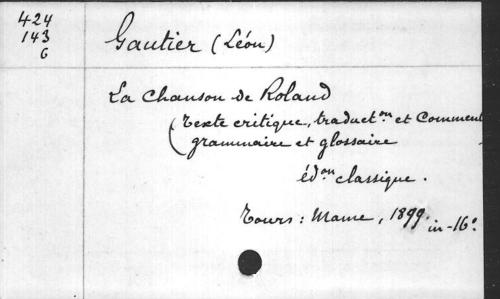 424
143
6
Gautier (Léon)
La Chanson de Roland
(Texte critique, traduct.on et Comment
grammaire et glossaire
éd.on classique.
Tours : Mame, 1899. in-16°